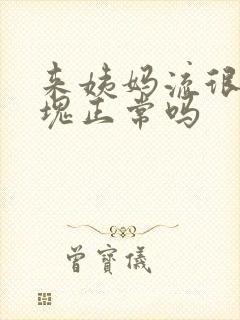 来姨妈流很
块正常吗
曾寶儀